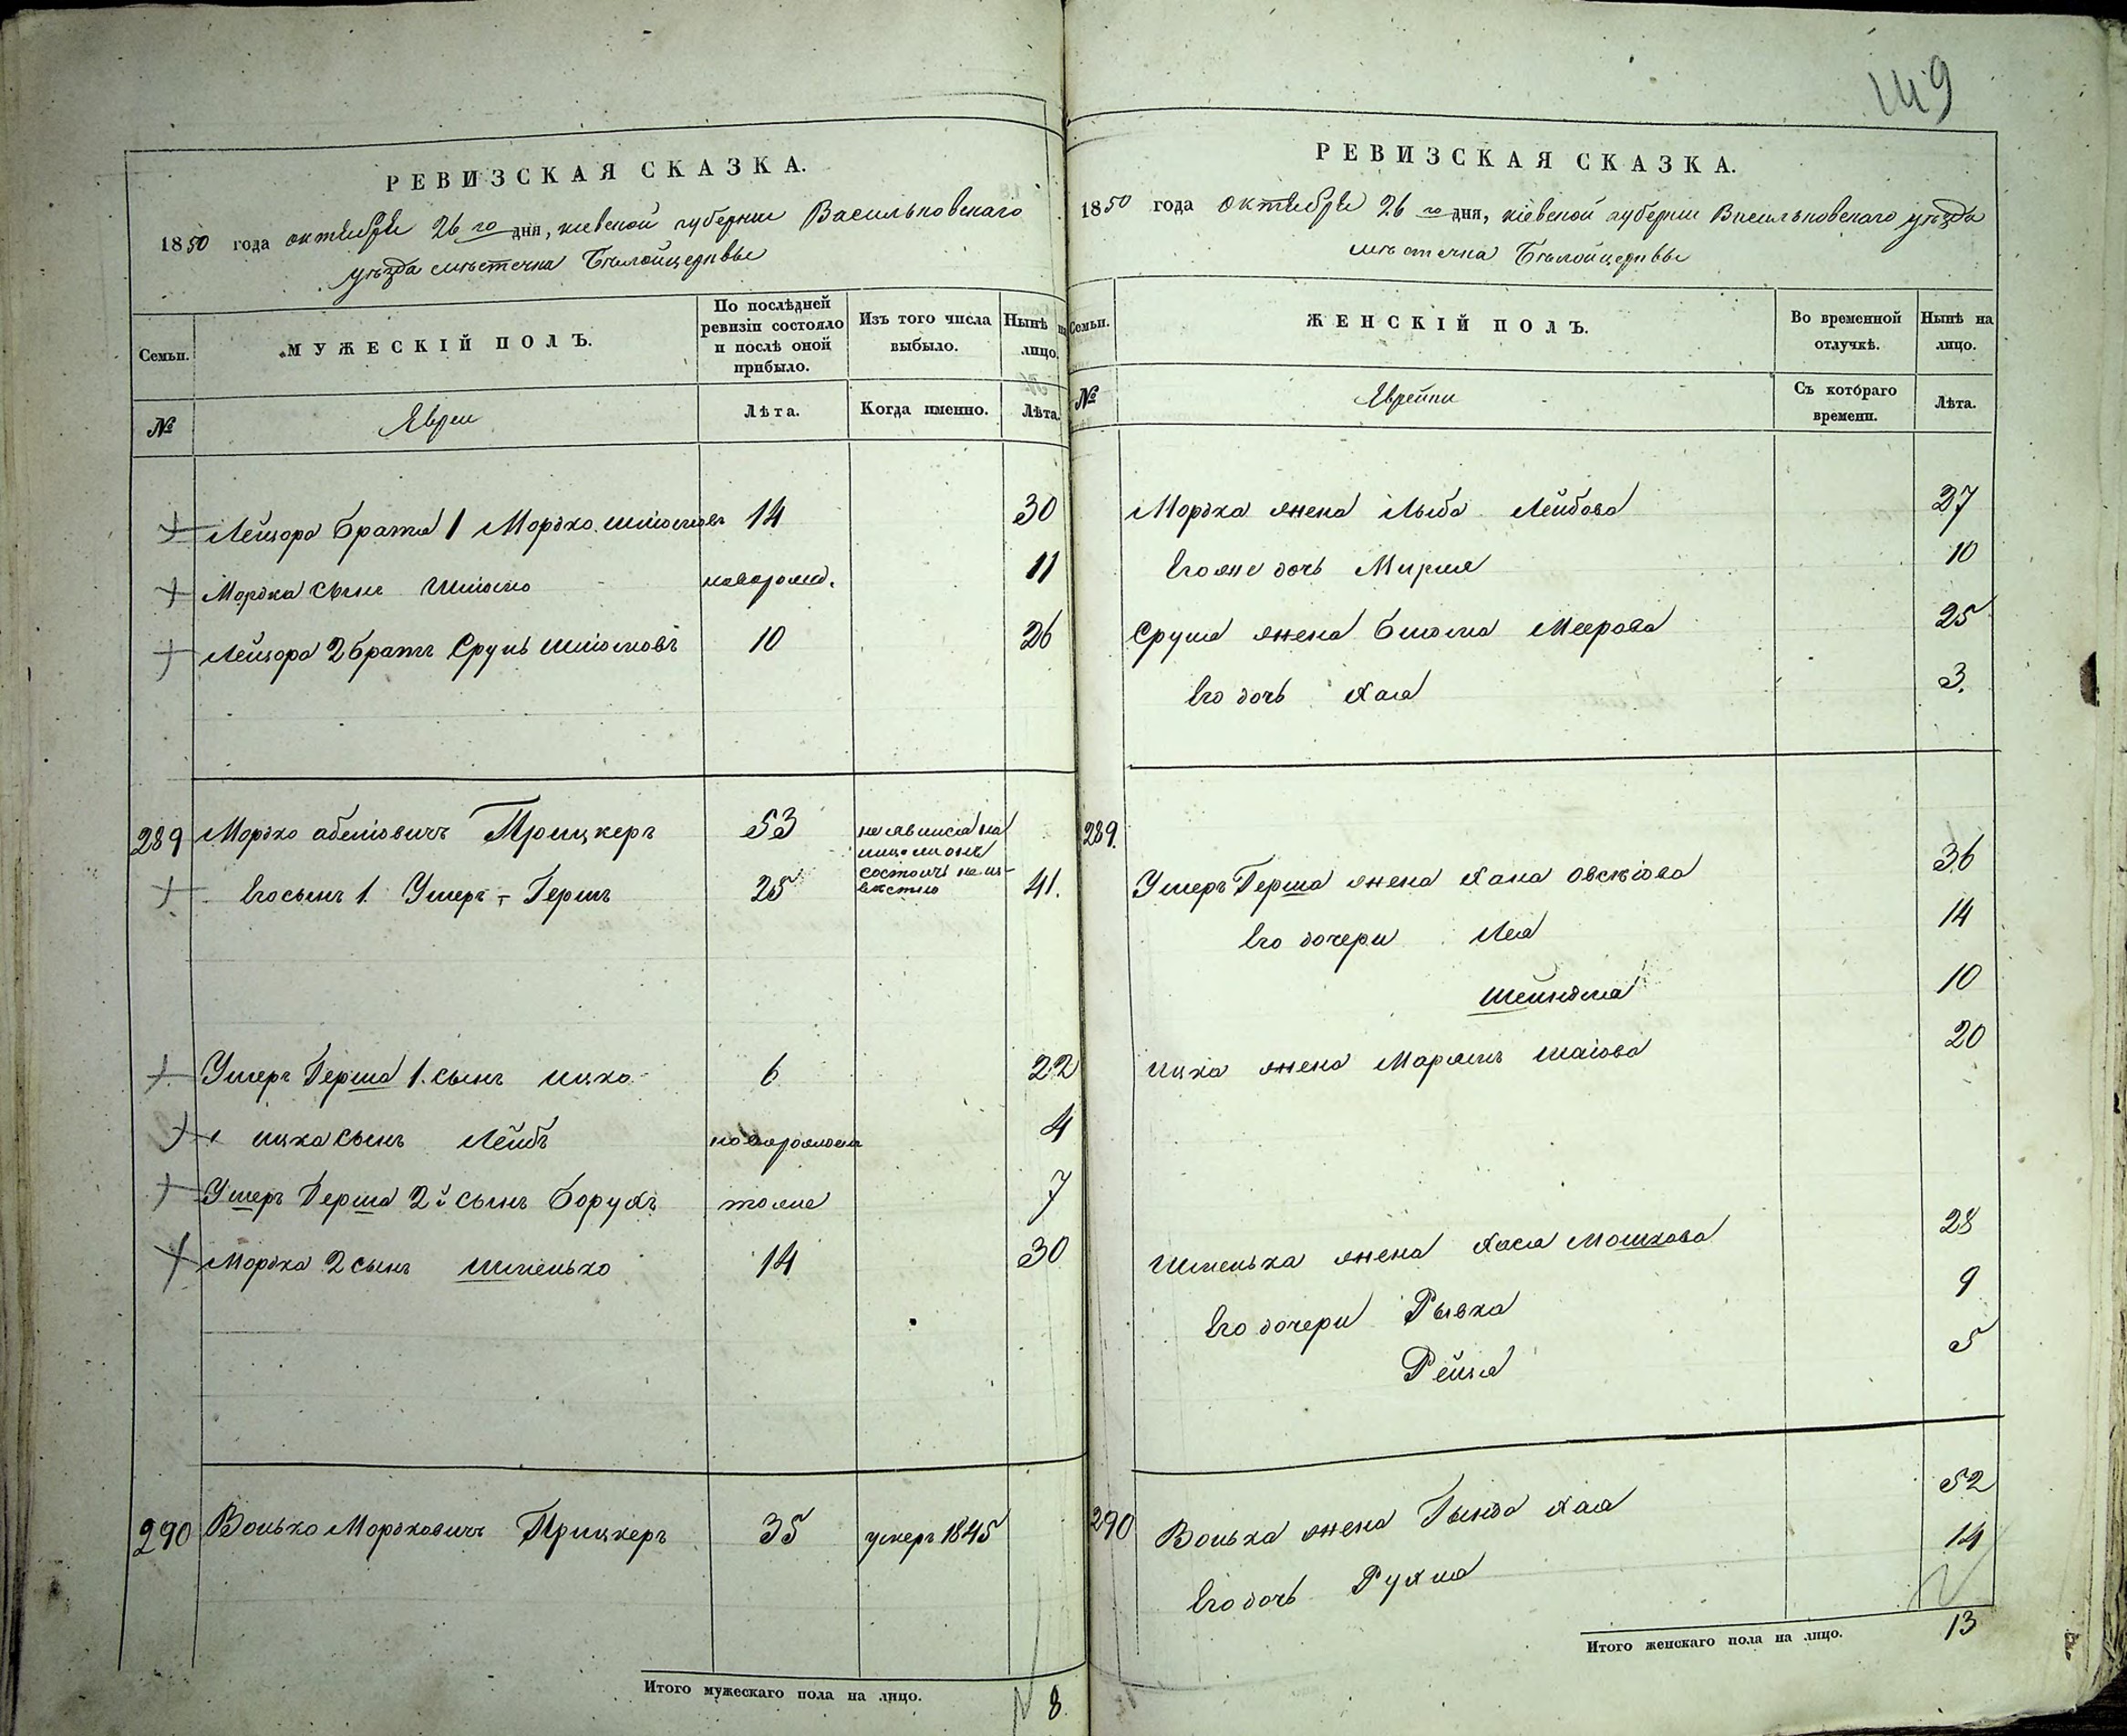 РЕВИЗСКАЯ СКАЗКА.
1850 года октября 26 го дня, киевской губернии Васильковскаго
уѣзда мѣстечка Бѣлойцеркви
Семьи.
МУЖЕСКІЙ ПОЛЪ.
По послѣдней ревизіи состояло и послѣ оной прибыло.
Изъ того числа выбыло.
Нынѣ на лицо.
№
Евреи
Лѣта.
Когда именно.
Лѣта.
Лейзора брата 1 Мордко Шліомовъ 14 30
Мордка сынъ Шліомо новорожд. 11
Лейзора 2 братъ Сруль Шліомовъ 10 26
289 Мордко Абеліовичъ Трицкеръ 53 неявился на
лицо
состоитъ неиз-
вѣстно
Его сынъ 1. Ушеръ-Гершъ 25 41.
Ушеръ Герша 1. сынъ Ицко 6 22
Ицка сынъ Лейбъ новорожден 4
Ушеръ Герша 2й сынъ Борухъ тоже 7
Мордка 2 сынъ Шмелько 14 30
290 Волько Мордковичъ Трицкеръ 35 умеръ 1845
Итого мужескаго пола на лицо. 8.
149
РЕВИЗСКАЯ СКАЗКА.
1850 года октября 26 го дня, кіевской губернии Васильковскаго уѣзда
мѣстечка Бѣлойцеркви
Семьи.
ЖЕНСКІЙ ПОЛЪ.
Во временной отлучкѣ.
Нынѣ на лицо.
№
Еврейки
Съ котораго времени.
Лѣта.
Мордка жена Лыба Лейбова 27
Его же дочь Мирія 10
Сруля жена Меерова 25
Его дочь Хая 3.
289.
Ушеръ Герша жена Хана Овсѣіова 36
Его дочери Лея 14
Шейндля 10
Ицка жена Марьямъ Шаіова 20
Шмелька жена Хася Мошкова 28
Его дочери Рывка 9
Рейзя 5
290 Волька жена Гында Хая 52
Его дочь Рухля 14
Итого женскаго пола на лицо. 13